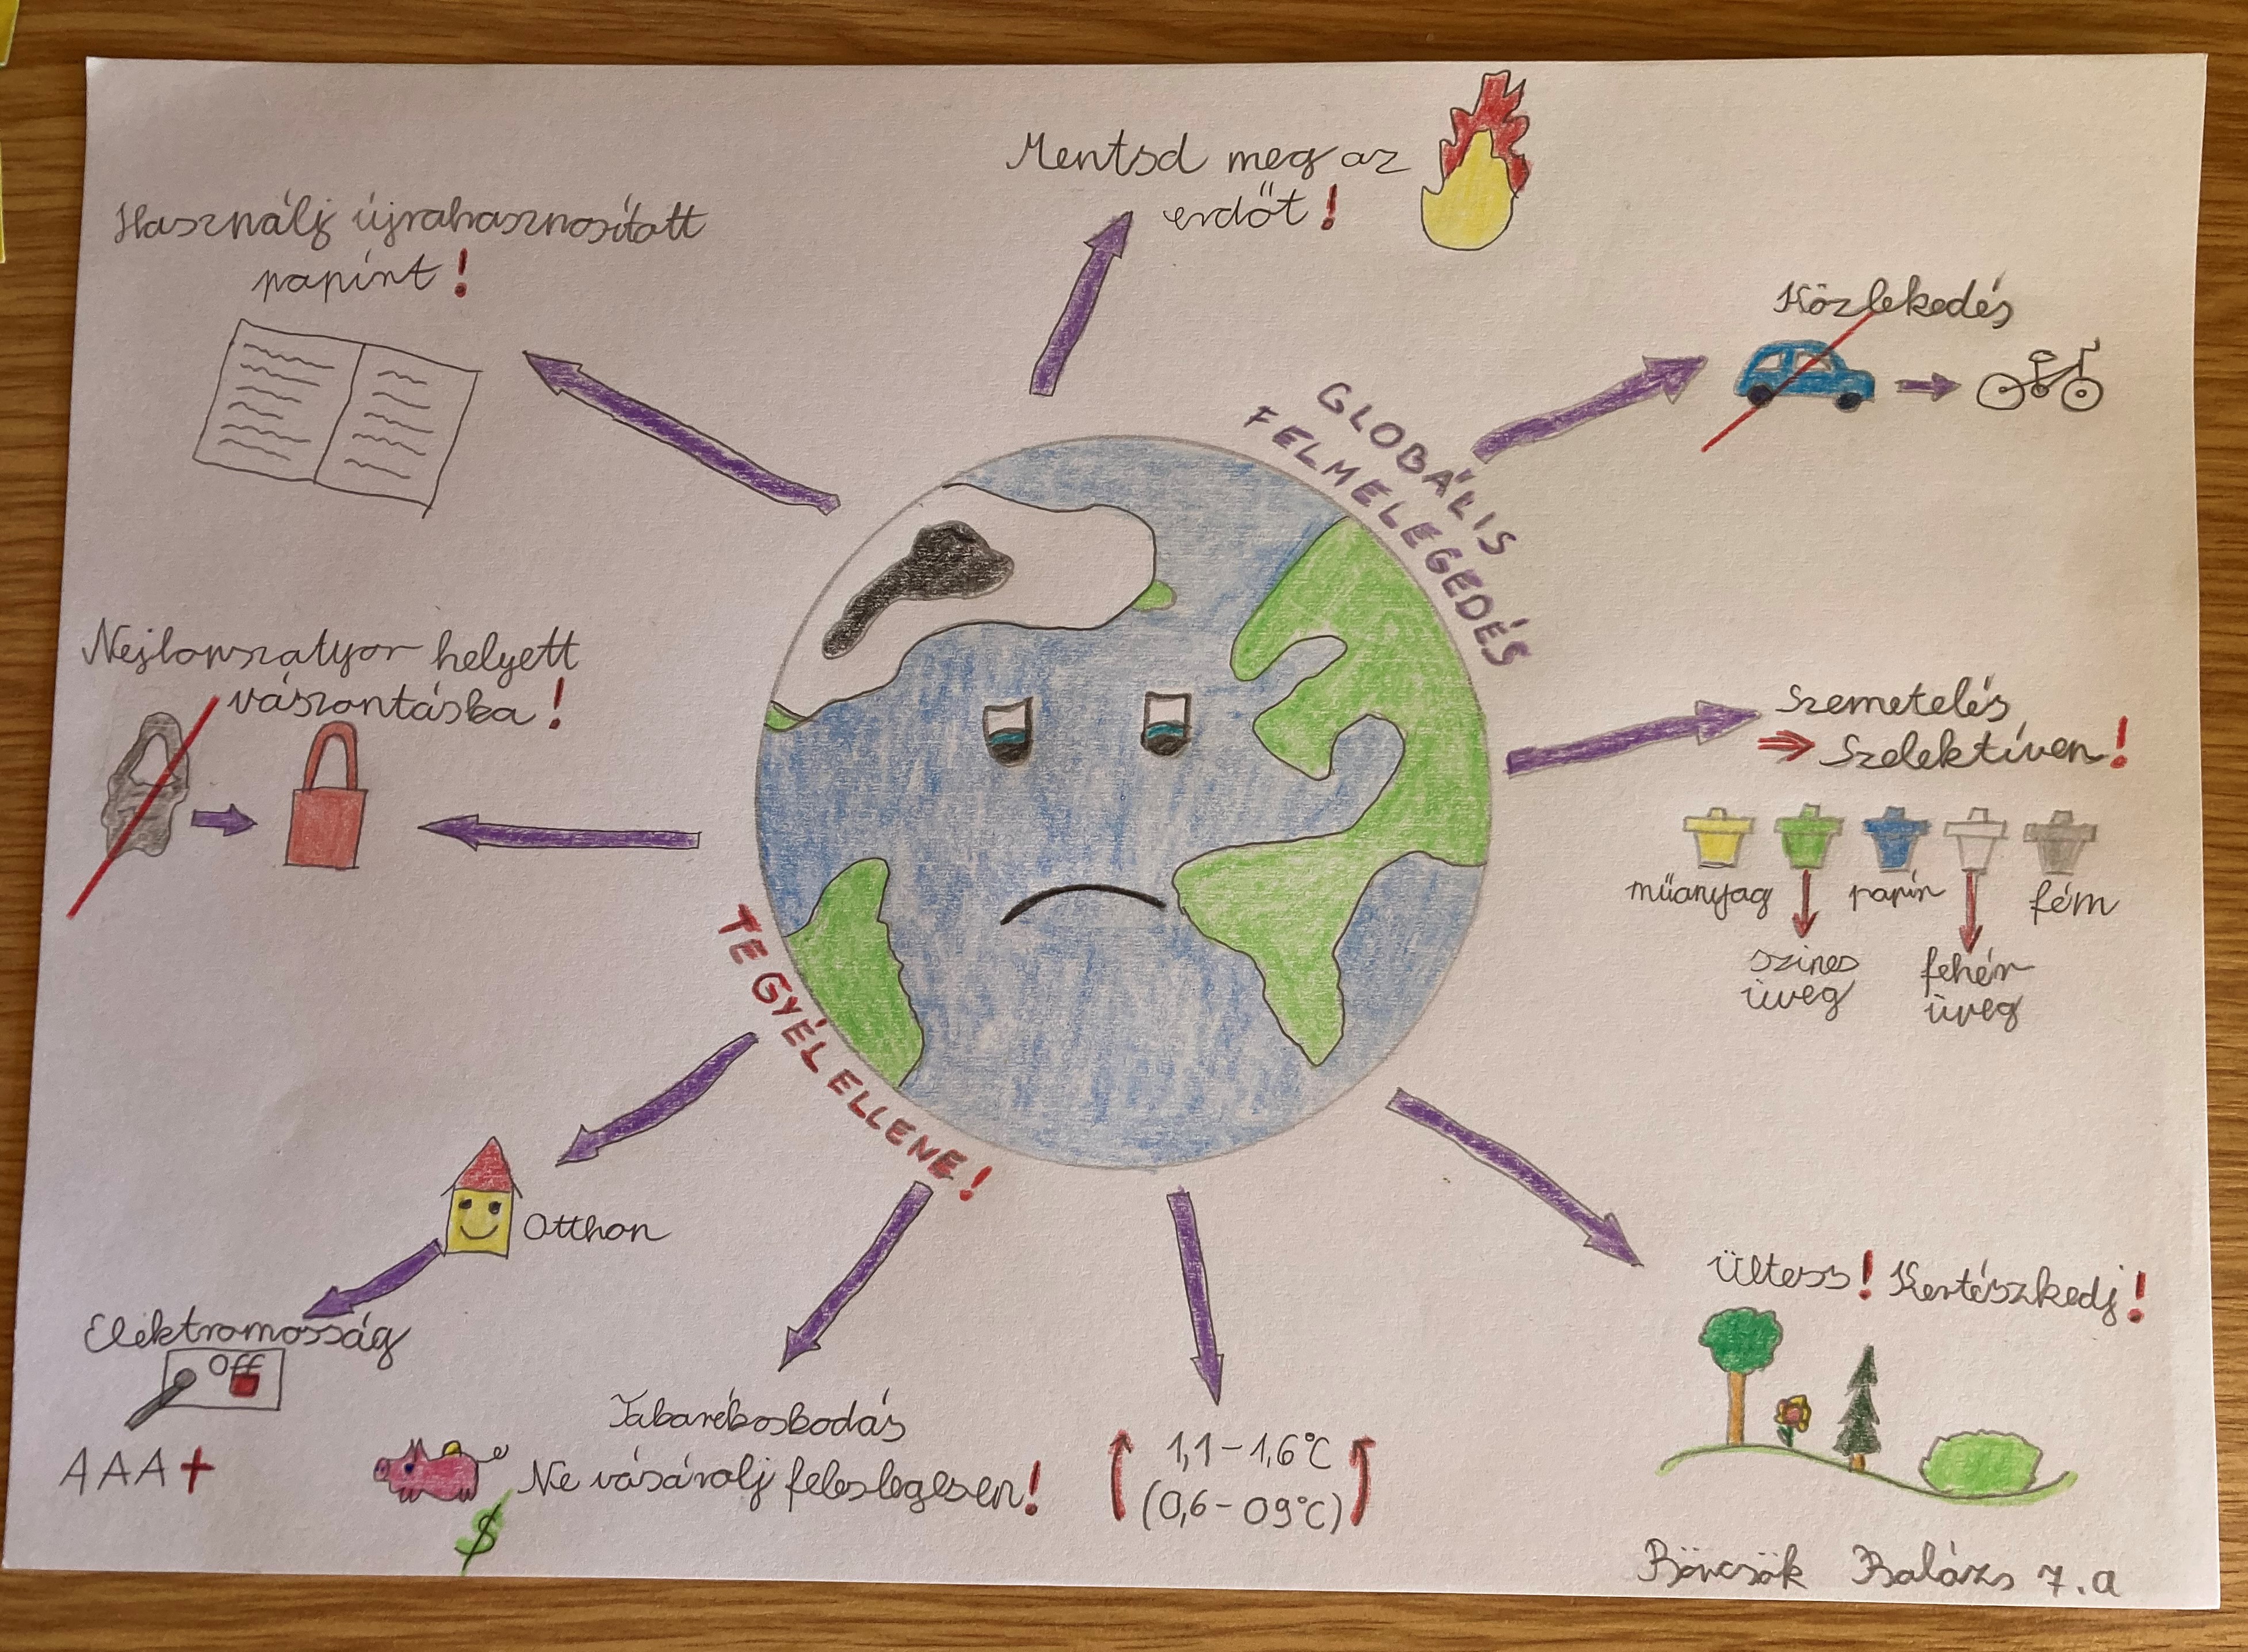 Mentsd meg az
erdőt!
Használj újrahasznosított
papírt!
Közlekedés
GLOBÁLIS
FELMELEGEDÉS
Nejlonszatyor helyett
vászontáska!
Szemetelés
Szelektíven!
műanyag
papír
fém
színes
üveg
fehér
üveg
TEGYÉL ELLENE!
Otthon
Elektromosság
Off
AAA+
Takarékoskodás
Ne vásárolj feleslegesen!
$
1,1-1,6°C
(0,6-09°C)
Ültess! Kertészkedj!
Börcsök Balázs 7.a